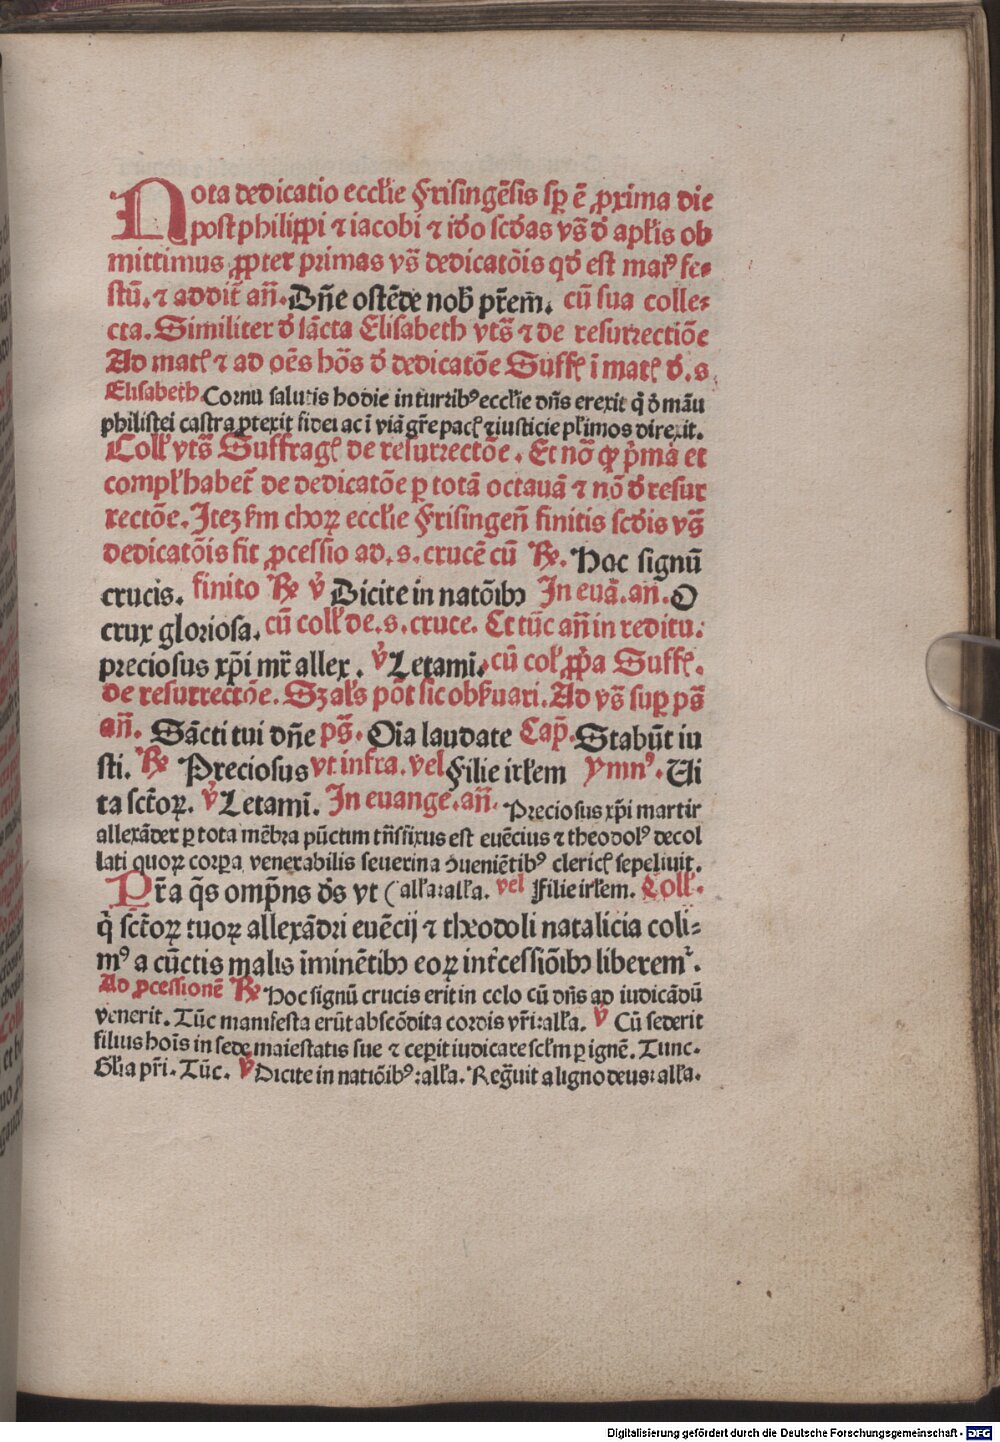 Nota dedicatio eccƚie Frisingēsis sp̄ ē ꝓxima die
post philippi ⁊ iacobi ⁊ iđo scđas vs̄ đ apƚis ob
mittimus ꝓpter primas vs̄ dedicatōis qđ est maꝰ fe⸗
stū. ⁊ addit̄ an̄. Dn̄e ostēde nob̄ pr̄em̄. cū sua colle⸗
cta. Similiter đ sācta Elisabeth vts̄ ⁊ de resurrectiōe
Ad mat̄ ⁊ ad oēs hōs đ dedicatōe Suff̄ ī mat̄ đ. s
Elisabeth Cornu salutis hodie in turribꝰ eccƚie dn̄s erexit q̄ đ māu
philistei castra ꝓtexit fidei ac ī viā gr̄e pac̄ ⁊ iusticie pƚimos direxit.
Coll̄ vts̄ Suffraḡ de resurrectōe. Et nō qꝫ p̄ma et
compƚ habet̄ de dedicatōe ꝑ totā octauā ⁊ nō đ resur
rectōe. Itez ẜm choꝝ eccƚie Frisingen̄ finitis scđis vs̄
dedicatōis fit ꝓcessio ad. s. crucē cū ℟. Hoc signū
crucis. finito ℟ ℣ Dicite in natōibꝫ In euā. an̄. O
crux gloriosa. cū coll̄ de. s. cruce. Et tūc an̄ in reditu.
preciosus xp̄i mr̄ allex. ℣ Letami. cū col̄ ꝓp̄a Suff̄.
de resurrectōe. Sz aƚs pōt sic obẜuari. Ad vs̄ suꝑ ps̄
an̄. Sācti tui dn̄e ps̄. Oīa laudate Cap̄. Stabūt iu
sti. ℟ Preciosus vt infra. vel Filie irƚem ymnꝰ. Ui
ta sct̄oꝝ. ℣ Letami. In euange. an̄. Preciosus xp̄i martir
allexāder ꝑ tota mēbra pūctim tn̄sfixus est euēcius ⁊ theodolꝰ decol
lati quoꝝ corpa venerabilis seuerina ↄueniētibꝰ cleric̄ sepeliuit.
Pr̄a q̄s omp̄ns đs vt ( alƚa:alƚa. vel Filie irƚem. Coll̄.
q̄ sct̄oꝝ tuoꝝ allexādri euēcij ⁊ theodoli natalicia coli⸗
mꝰ a cūctis malis īminētibꝫ eoꝝ int̄cessiōibꝫ liberem̄.
Ad ꝓcessionē ℟ Hoc signū crucis erit in celo cū dn̄s ad iudicādū
venerit. Tūc manifesta erūt abscōdita cordis vr̄i:alƚa. ℣ Cū sederit
filius hoīs in sede maiestatis sue ⁊ ceperit iudicare scƚm ꝑ ignē. Tunc.
Gƚia pr̄i. Tūc. ℣ Dicite in natiōibꝰ:alƚa. Regn̄uit a ligno deus:alƚa.
Digitalisierung gefördert durch die Deutsche Forschungsgemeinschaft - DFG